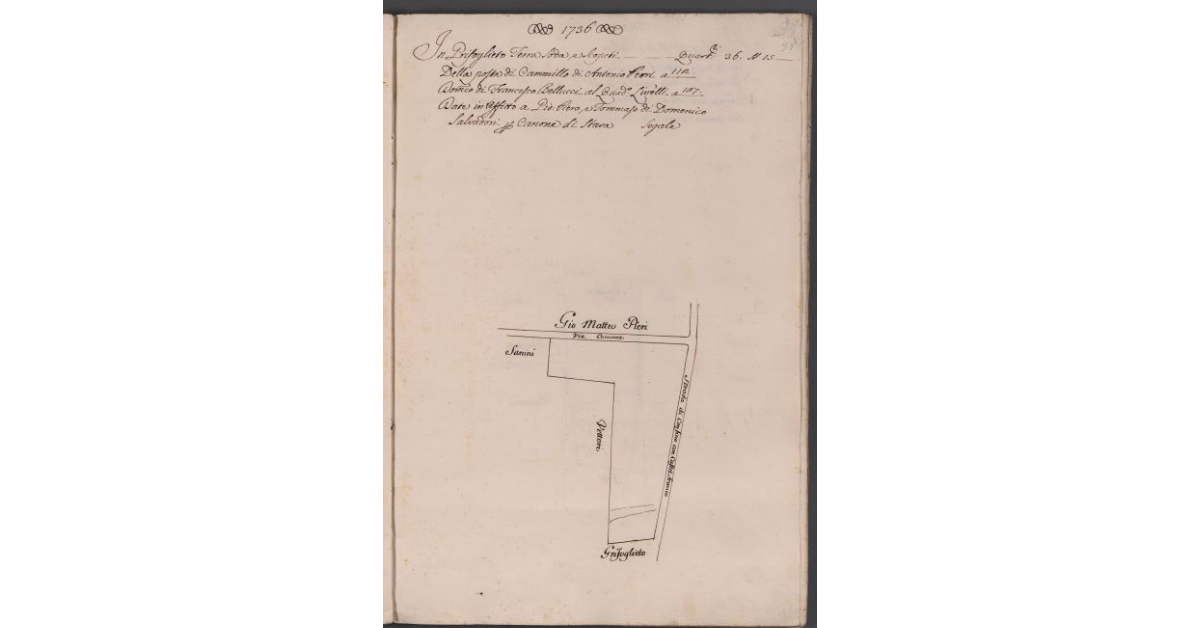 1736
In Prifoglieto Terra Soda, e Scopeti Quart.e 36. N 15
Della posta di Cammillo di Antonio Ferri a 112
Domco di Francesco Bellucci al Quad.o Livelli a 187.
Date in Affitto a Pie. Piero, e Tommaso di Domenico
Salvadori Canone di Stara Segale
Gio Matteo Pieri
Via Comune
Sanini
Strada di Confine con Castel Franco
Vettori
Grifoglieto